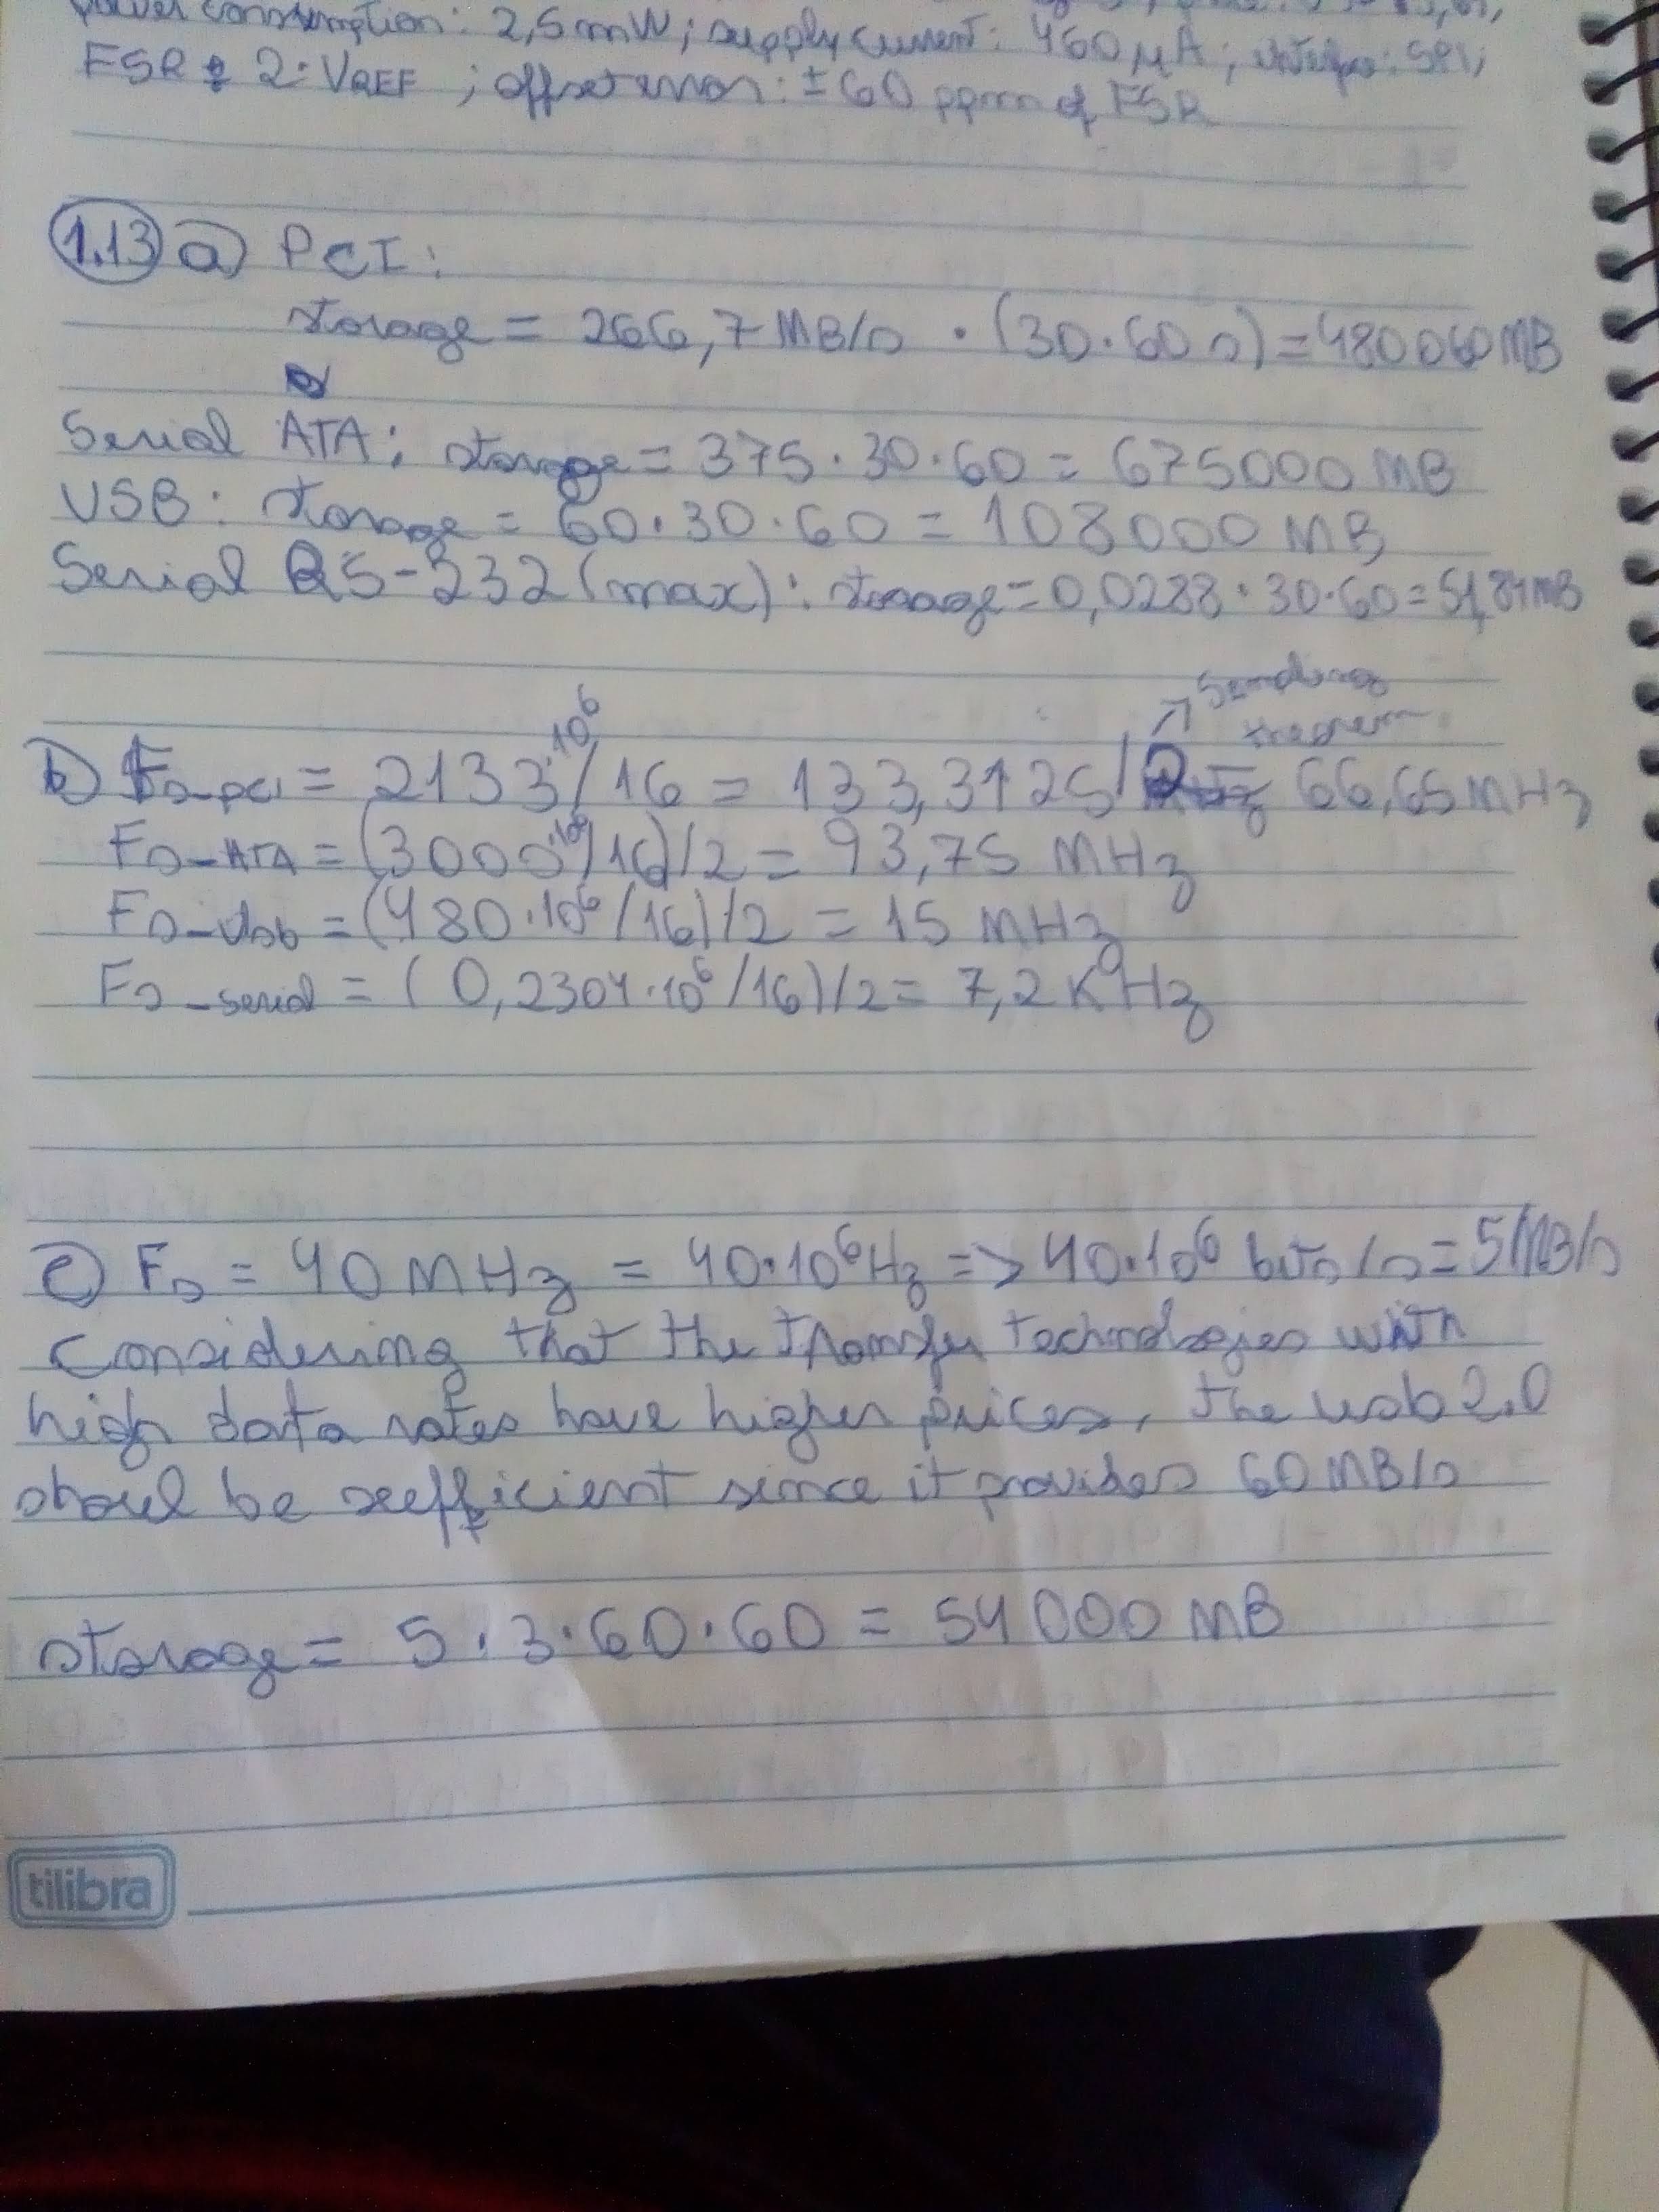 power consumption: 2,5mW; supply current: 460 μA; SPI;
FSR = 2·VREF ; offset error: ± 60 ppm of FSR
1.13 a) PCI:
storage = 266,7 MB/s · (30·60 s) = 480060 MB
Serial ATA: storage = 375·30·60 = 675000 MB
USB: storage = 60·30·60 = 108000 MB
Serial RS-232 (max): storage = 0,0288·30·60 = 51,84 MB
↗ Sampling
theorem
b) Fs_PCI = 2133·10⁶/16 = 133,3125/2 = 66,65 MHz
Fs_ATA = (3000·10⁶/16)/2 = 93,75 MHz
Fs_Usb = (480·10⁶/16)/2 = 15 MHz
Fs_serial = (0,2304·10⁶/16)/2 = 7,2 KHz
c) Fs = 40 MHz = 40·10⁶ Hz => 40·10⁶ bits/s = 5 MB/s
Considering that the transfer technologies with
high data rates have higher prices, the usb 2.0
shoul be sefficient since it provides 60 MB/s
storage = 5·3·60·60 = 54000 MB
tilibra